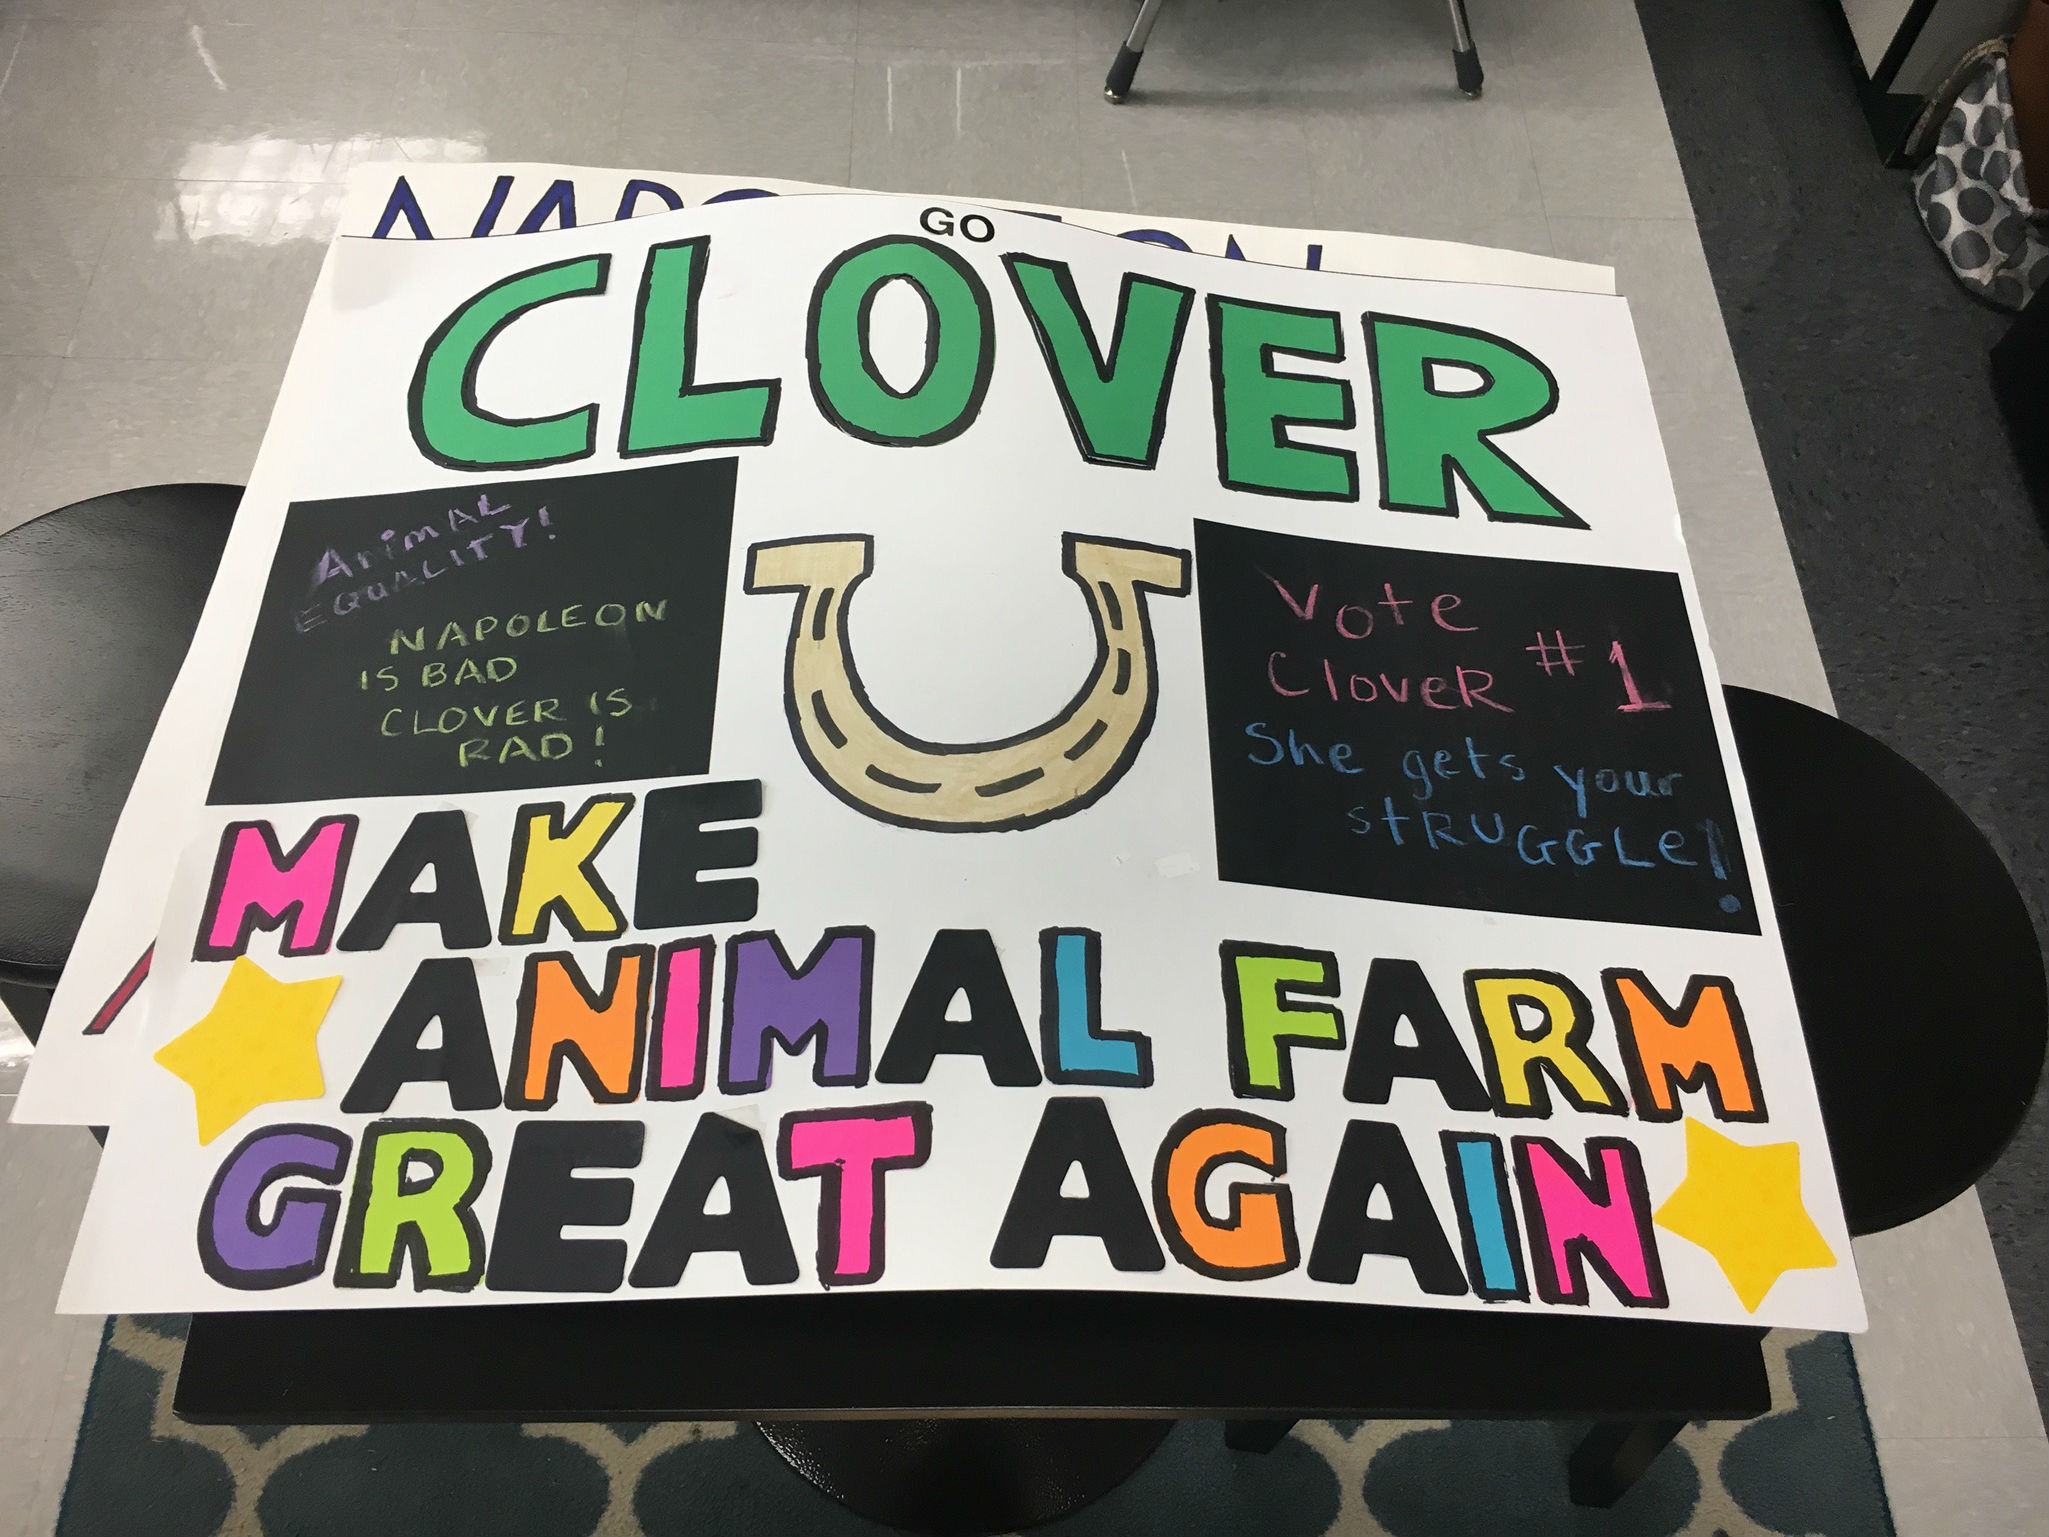 GO
CLOVER
Animal
EQUALITY!
NAPOLEON
IS BAD
CLOVER IS
RAD!
Vote
CloveR #1
She gets your
stRUGGLe!
MAKE
ANIMAL FARM
GREAT AGAIN